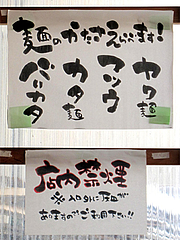 麺のかたさえらべます!
ヤワ麺
フツウ
カタ麺
バリカタ
店内禁煙
※入口外に灰皿が
ありますのでご利用下さい!!